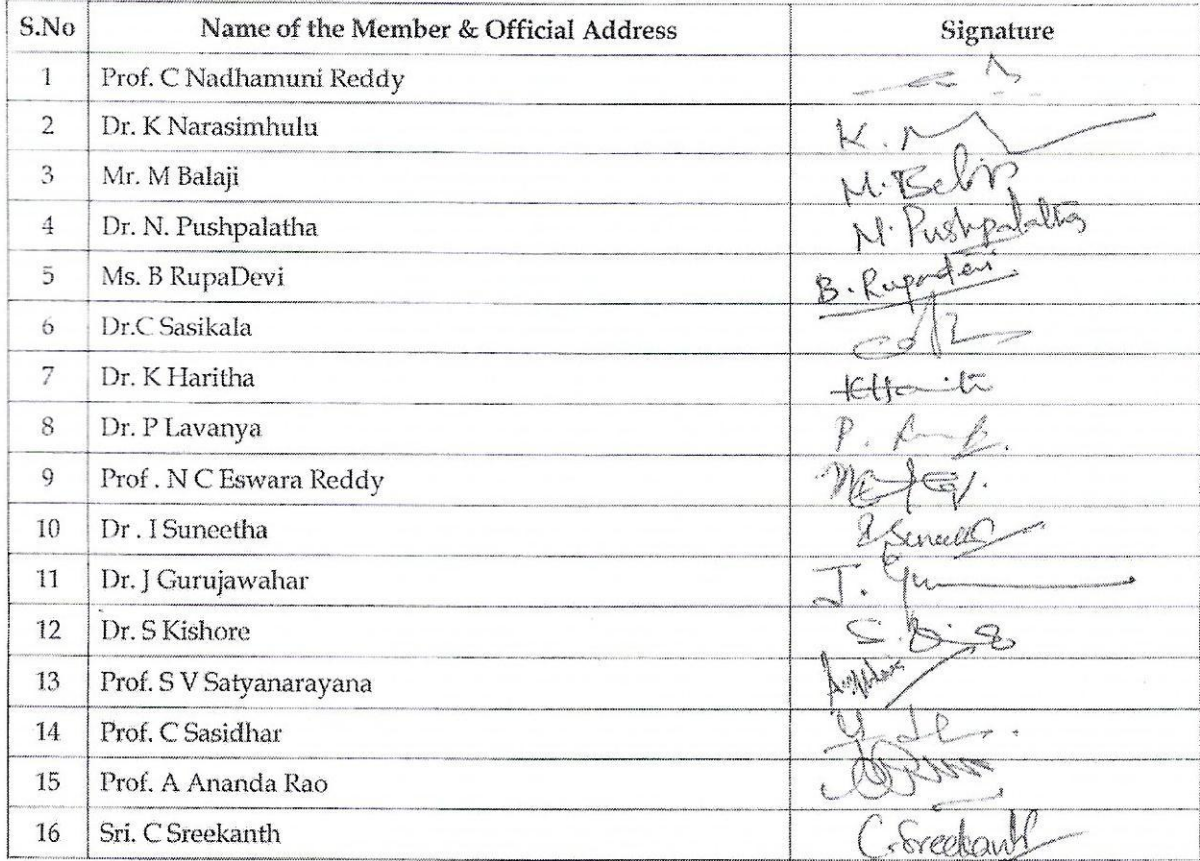 S.No Name of the Member & Official Address Signature
1 Prof. C Nadhamuni Reddy
2 Dr. K Narasimhulu K.
3 Mr. M Balaji M.
4 Dr. N. Pushpalatha N. Pushpalatha
5 Ms. B RupaDevi B. Rupadevi
6 Dr.C Sasikala
7 Dr. K Haritha
8 Dr. P Lavanya P.
9 Prof . N C Eswara Reddy
10 Dr . I Suneetha
11 Dr. J Gurujawahar J.
12 Dr. S Kishore S.
13 Prof. S V Satyanarayana
14 Prof. C Sasidhar
15 Prof. A Ananda Rao
16 Sri. C Sreekanth C. Sreekanth